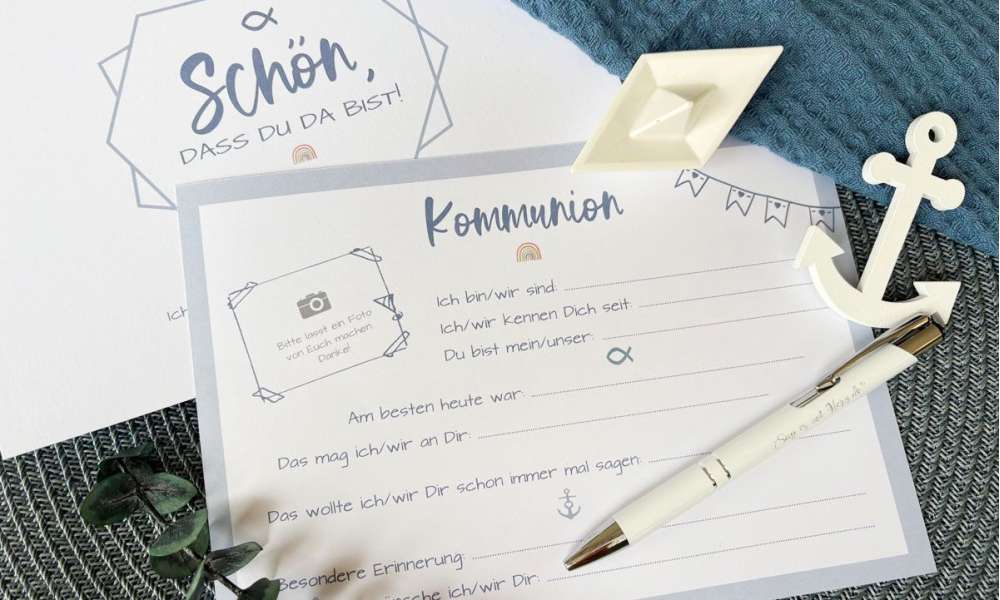 Schön,
DASS DU DA BIST!
Ich
Kommunion
Bitte lasst ein Foto
von Euch machen
Danke!
Ich bin/wir sind:
Ich/wir kennen Dich seit:
Du bist mein/unser:
Am besten heute war:
Das mag ich/wir an Dir:
Das wollte ich/wir Dir schon immer mal sagen:
Besondere Erinnerung:
ich/wir Dir: